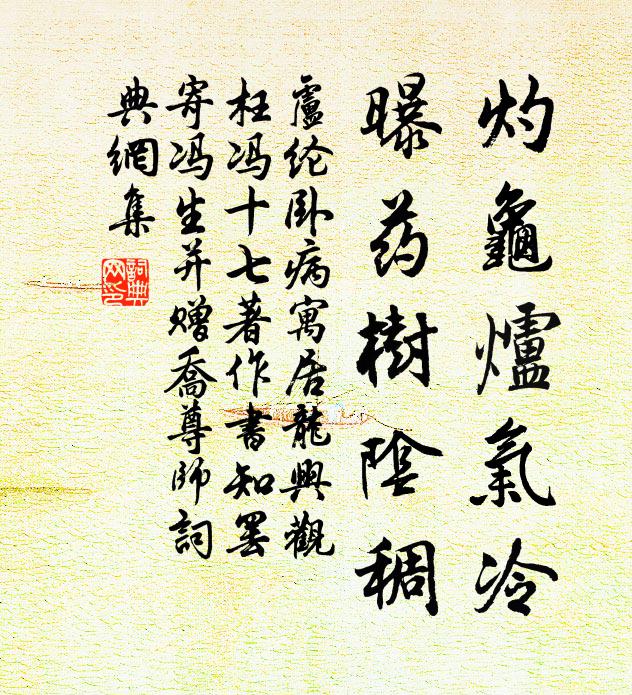 灼龜爐氣冷
曝药樹陰稠
盧纶卧病寓居龍興觀
枉冯十七著作書知罢
寄冯生并赠喬尊師詞
典網集
詞典网印